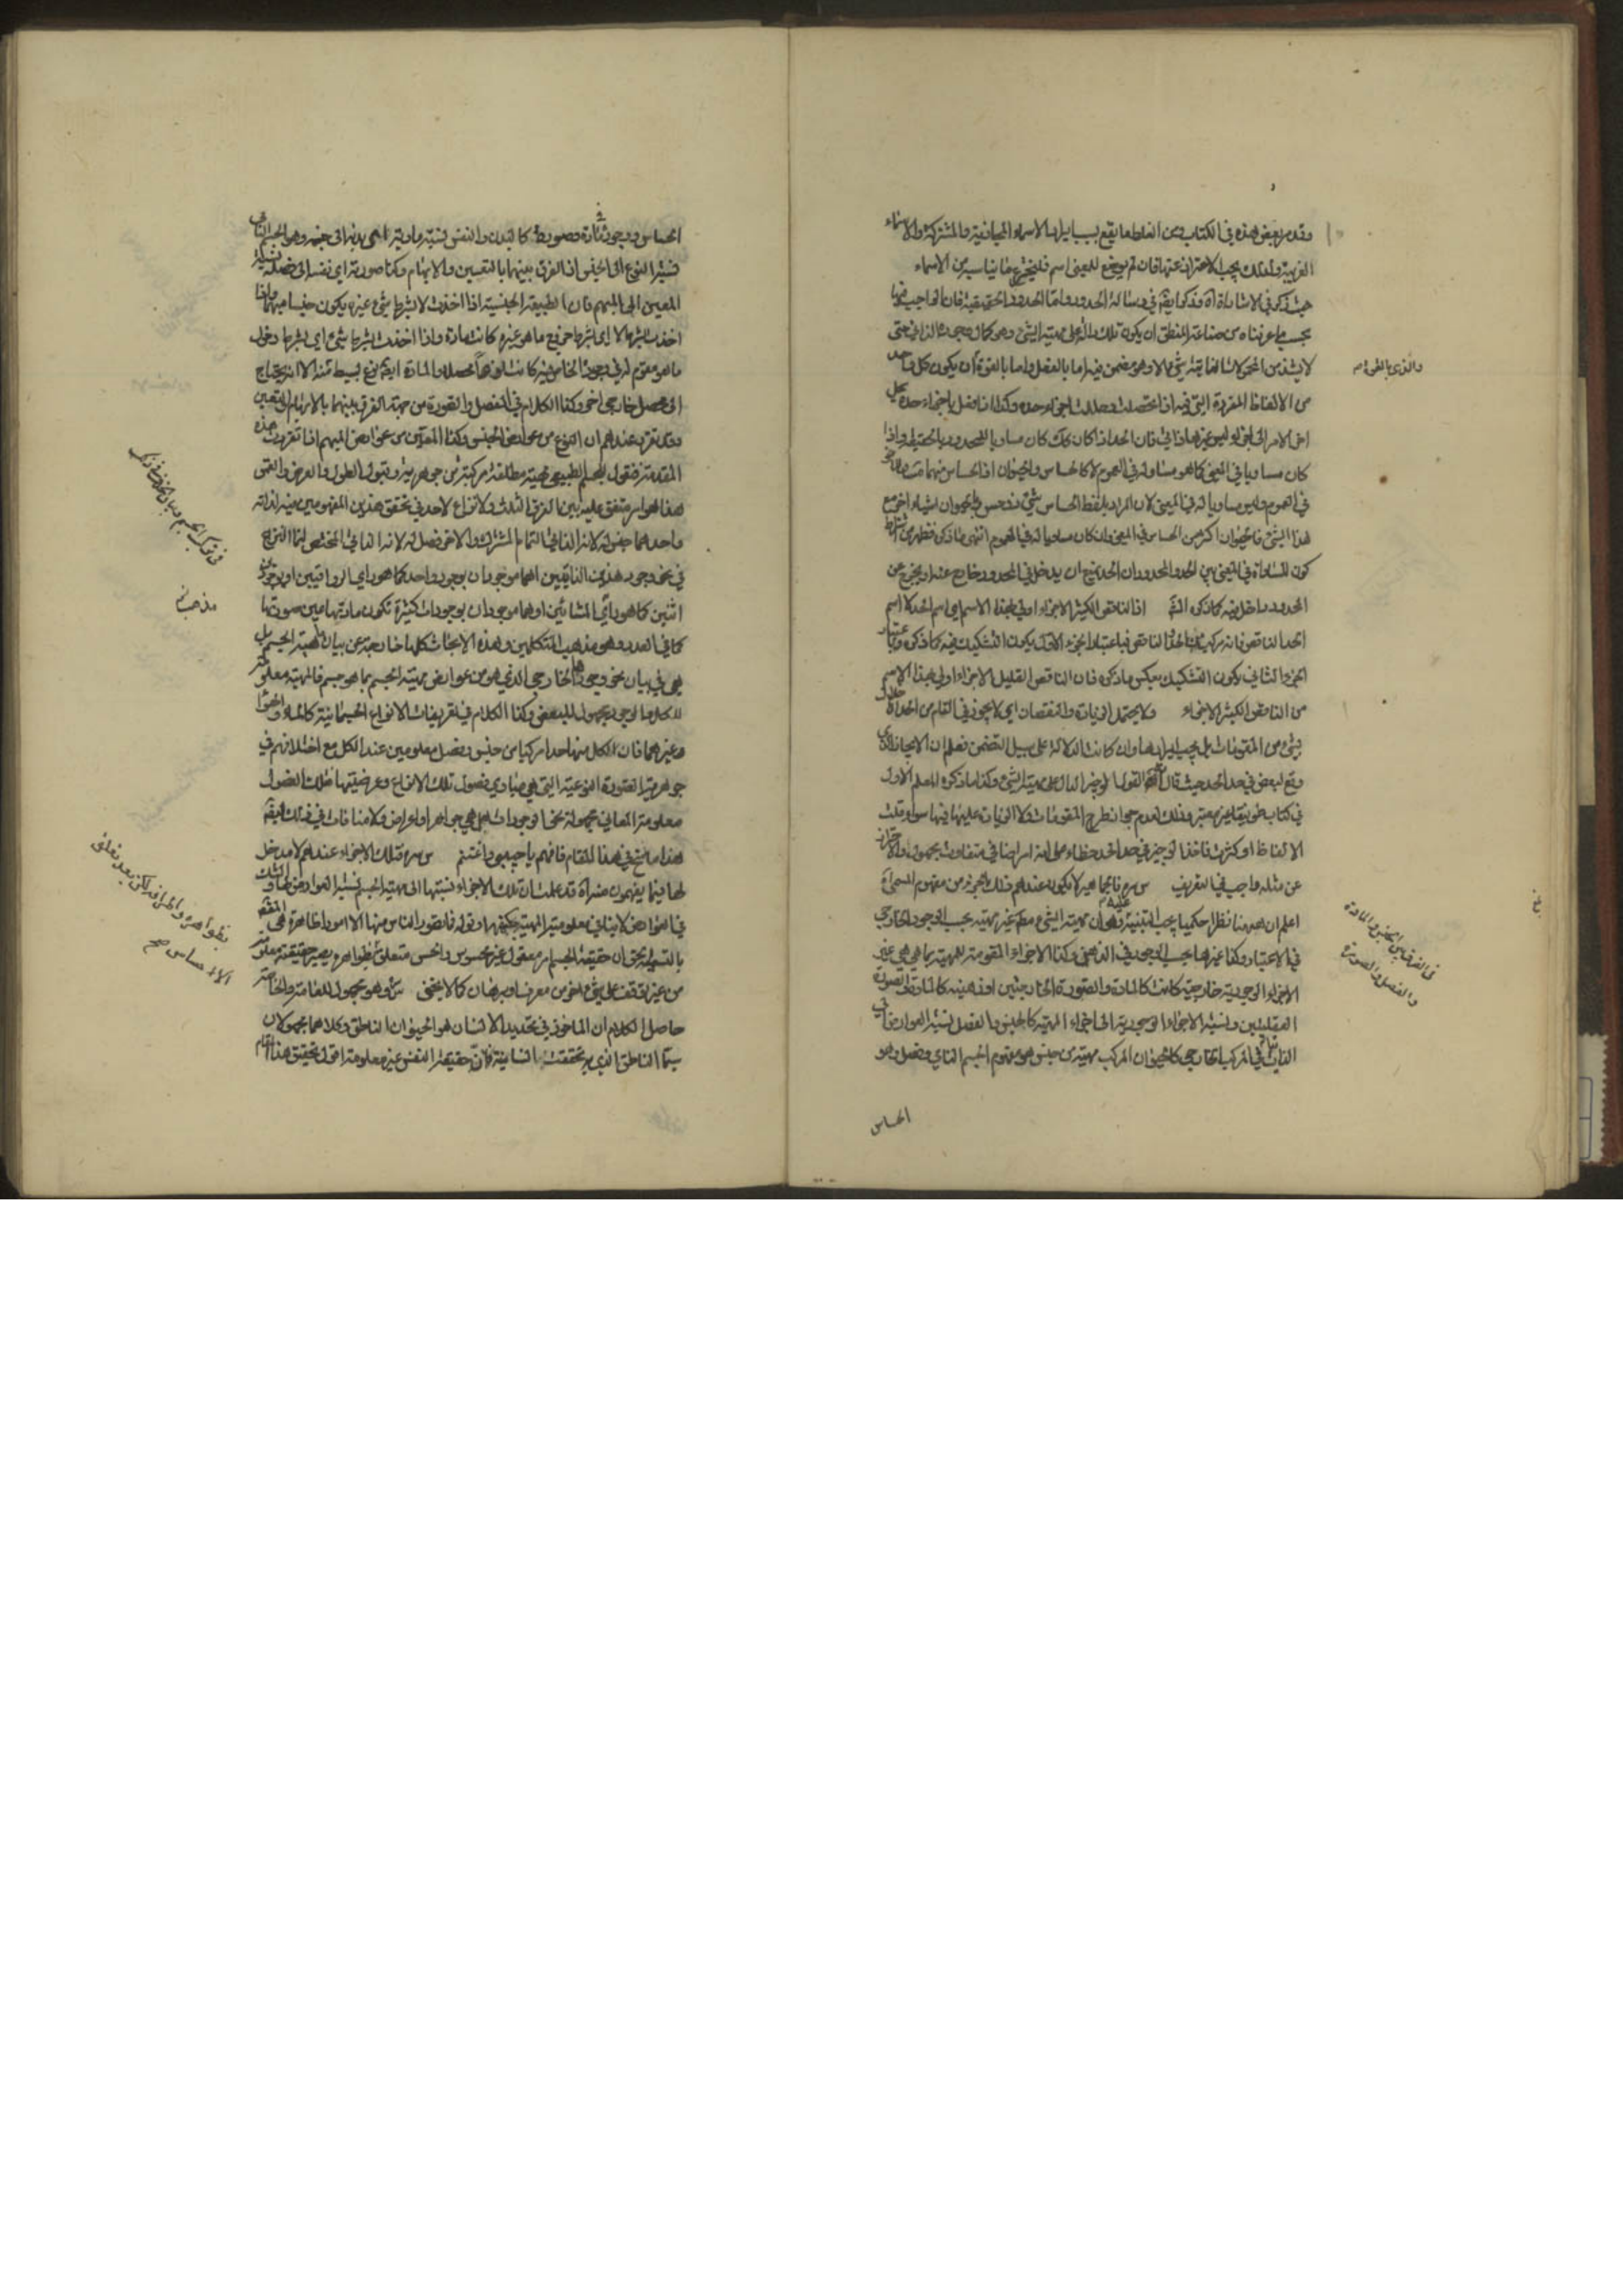 وقد مر بعض هذه في الكتاب ومن الغلط ما يقع بسبب ايراد الاسماء المجازية والمشتركة والاسماء
الغريبة ولذلك يجب الاحتراز عنها فان لم يوضع للمعنى اسم فليخترع ما يناسبه من الاسماء
حيث ذكر في الاشارات وذكر ايضا في رسالة الحدود واما الحدود الحقيقية فان الواجب فيها
بحسب ما عرفناه من صناعة المنطق ان يكون دالة على مهية الشيء وهو كمال وجوده الذاتي حتى
لا يشذ من المحمولات الذاتية شيء الا وهو مضمن فيه اما بالفعل واما بالقوة ان يكون كل واحد
من الالفاظ المفردة التي فيه اذا تحصلت وحللت اجزاء حده وكذا اذا فعل باجزاء حده
اخر الامر الى اجزاء ليس غيرها ذاتي فان الحد اذا كان كك كان مساويا للمحدود بالحقيقة واذا
كان مساويا في المعنى كما هو مساو له في العموم لا كالحساس والحيوان اذ الحساس منهما
في العموم وليس مساويا له في المعنى لان المراد بلفظ الحساس شيء ذو حس والحيوان اشياء اخر مع
هذا الشيء فالحيوان اكثر من الحساس في المعنى وان كان مساويا له في العموم انتهى ما ذكر فظهر من
كون المساواة في المعنى بين الحد والمحدود ان الحد يمنع ان يدخل في المحدود خارج عنه او يخرج عن
المحدود داخل فيه كما ذكره اذ الناقص الكثير الاجزاء اولى بهذا الاسم اي اسم الحد
الحد الناقص فانه مركب فباعتبار الجزء الاول يكون التشكيك فيه كما ذكره
الجزء الثاني يكون التشكيك بعكس ما ذكره فان الناقص القليل الاجزاء اولى بهذا الاسم
من الناقص الكثير الاجزاء ولا يحتمل الزيادة والنقصان اي لا يجوز في التام من الحد
شيء من المقومات بل يجب ايرادها وان كانت الدلالة على سبيل التضمن فعلم ان الايجاز الذي
وقع لبعض في حد الحد حيث قال القول الوجيز الدال على مهية الشيء وكذا ما ذكره المعلم الاول
في كتاب طوبيقا غير معتبر وذلك لعدم جواز طرح المقومات ولا الزيادة عليها فيها سواء قلت
الالفاظ او كثرت فاخذ الوجيز في حد الحد خطاء على انه امر اضافي متفاوت مجهول والاحتراز
عن مثله واجب في التعريف
اعلم ان ههنا نظرا حكميا يجب التنبيه عليه وهو ان مهية الشيء غير مهيته بحسب الوجود الخارجي
في الاعتبار وكذا غيرها بحسب الوجود في الذهن وكذا الاجزاء المقومة للمهية بما هي هي غير
الاجزاء الوجودية خارجية كانت كالمادة والصورة الخارجتين او ذهنية كالمادة والصورة
العقليتين ونسبة الاجزاء الوجودية الى اجزاء المهية كالجنس والفصل نسبة العوارض الى
الذاتيات في المركب الخارجي كالحيوان المركب مهيته من جنس هو مفهوم الجسم النامي وفصل وهو
الحساس
والذي بالقوة
في الفرق بين الجنس والمادة
والفصل والصورة
الحساس ووجوده في مادة وصورة كالبدن والنفس نسبة مادته اعني بدنه الى جنسه وهو الجسم النامي
نسبة النوع الى الجنس اذ الفرق بينهما بالتعيين والابهام وكذا صورته اي نفسه الى فصله نسبة
المعين الى المبهم فان الطبيعة الجنسية اذا اخذت لا بشرط شيء غيره يكون جنسا مبهما واذا
اخذت بشرط لا اي بشرط خروج ما هو غيره كانت مادة واذا اخذت بشرط شيء اي بشرط دخول
ما هو مقوم له في وجوده الخاص به كانت نوعا محصلا والمادة ايضا نوع بسيط منه الا انه يحتاج
الى محصل خارجي اخر وكذا الكلام في الفصل والصورة من جهة الفرق بينهما بالابهام والتعيين
وقد تقرر عندهم ان النوع من عوارض الجنس وكذا المعين من عوارض المبهم اذا تقررت هذه
المقدمة فنقول للجسم الطبيعي مهية مطلقة مركبة من جوهرية وقبول الطول والعرض والعمق
هذا هو امر متفق عليه بين الفرق الثلث ولا نزاع لاحد في تحقق هذين المفهومين فيه لذاته
واحدهما جنس له لانه الذاتي التمام المشترك والاخر فصل له لانه الذاتي المختص انما النزاع
في نحو وجود هذين الذاتيين اهما موجودان بوجود واحد كما هو رأي الرواقيين او بوجودين
اثنين كما هو رأي المشائين او هما موجودان بوجودات كثيرة تكون مادتها عين صورتها
كما في العدد وهو مذهب المتكلمين وهذه الابحاث كلها خارجة عن بيان مهية الجسم بل
هي في بيان نحو وجودها الخارجي الذي هو من عوارض مهية الجسم بما هو جسم فالمهية معلومة
للكل والوجود مجهول للبعض وكذا الكلام في تعريفات الانواع الجسمانية كالماء والهواء
وغيرهما فان الكل منها حدا مركبا من جنس وفصل معلومين عند الكل مع اختلافهم في
جوهرية الصورة النوعية التي هي مبادي فصول تلك الانواع وعرضيتها فتلك الفصول
معلومة المعاني مجهولة نحو الوجودات هل هي جواهر او اعراض ولا منافات في ذلك
هذا ما سنح في هذا المقام فافهم يا حبيبي واغتنم فتلك الاجزاء عندهم لا مدخل
لها فيما يفهمون منه قد علمت ان تلك الاجزاء نسبتها الى مهية الجسم نسبة العوارض والشك
في العوارض لا ينافي معلومية المهية قوله فما تصور الناس منها الا امورا ظاهرة
حقيقة الجسم امر معقول غير محسوس والحس متعلق بظواهره حقيقته معلومة
من غير توقف على شيء اخر من معرف او برهان كما لا يخفى وهو مجهول للعامة والخاصة
حاصل الكلام ان الماخوذ في تحديد الانسان هو الحيوان الناطق وكلاهما مجهولان
سيما الناطق الذي به تحققت انسانيته لان حقيقة النفس غير معلومة اقول تحقيق هذا المقام
مذهب
بظواهره واطرافه لكن بعد تعلق
الاحساس صح